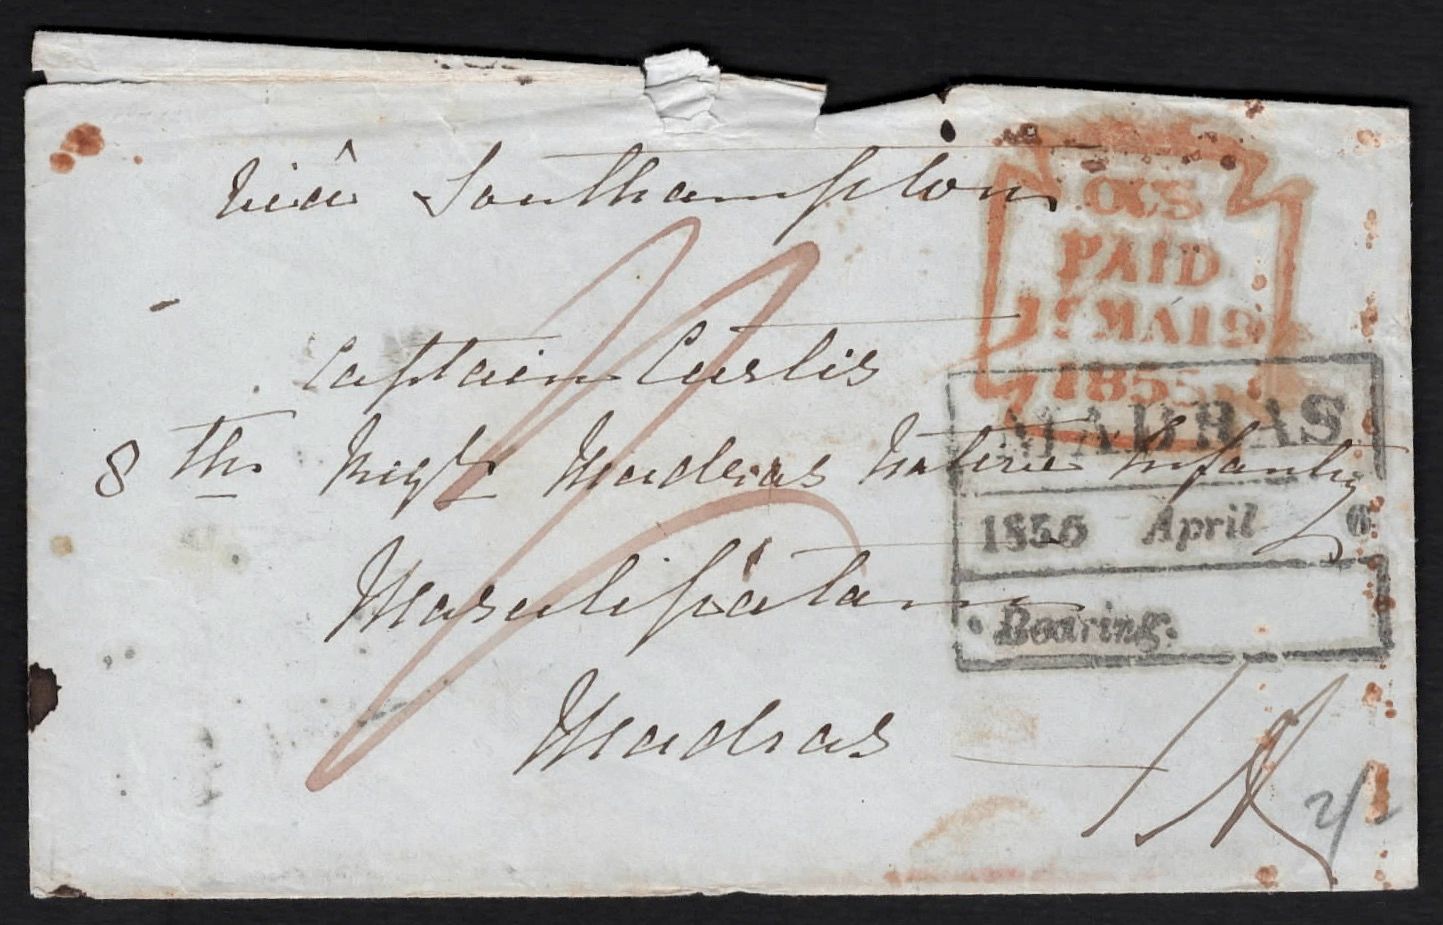 viâ Southampton
Captain Curtis
8th Regt Madras Native Infantry
Masulipatam
Madras
PAID
1855
MADRAS
1856 April 6
Bearing.
2/-